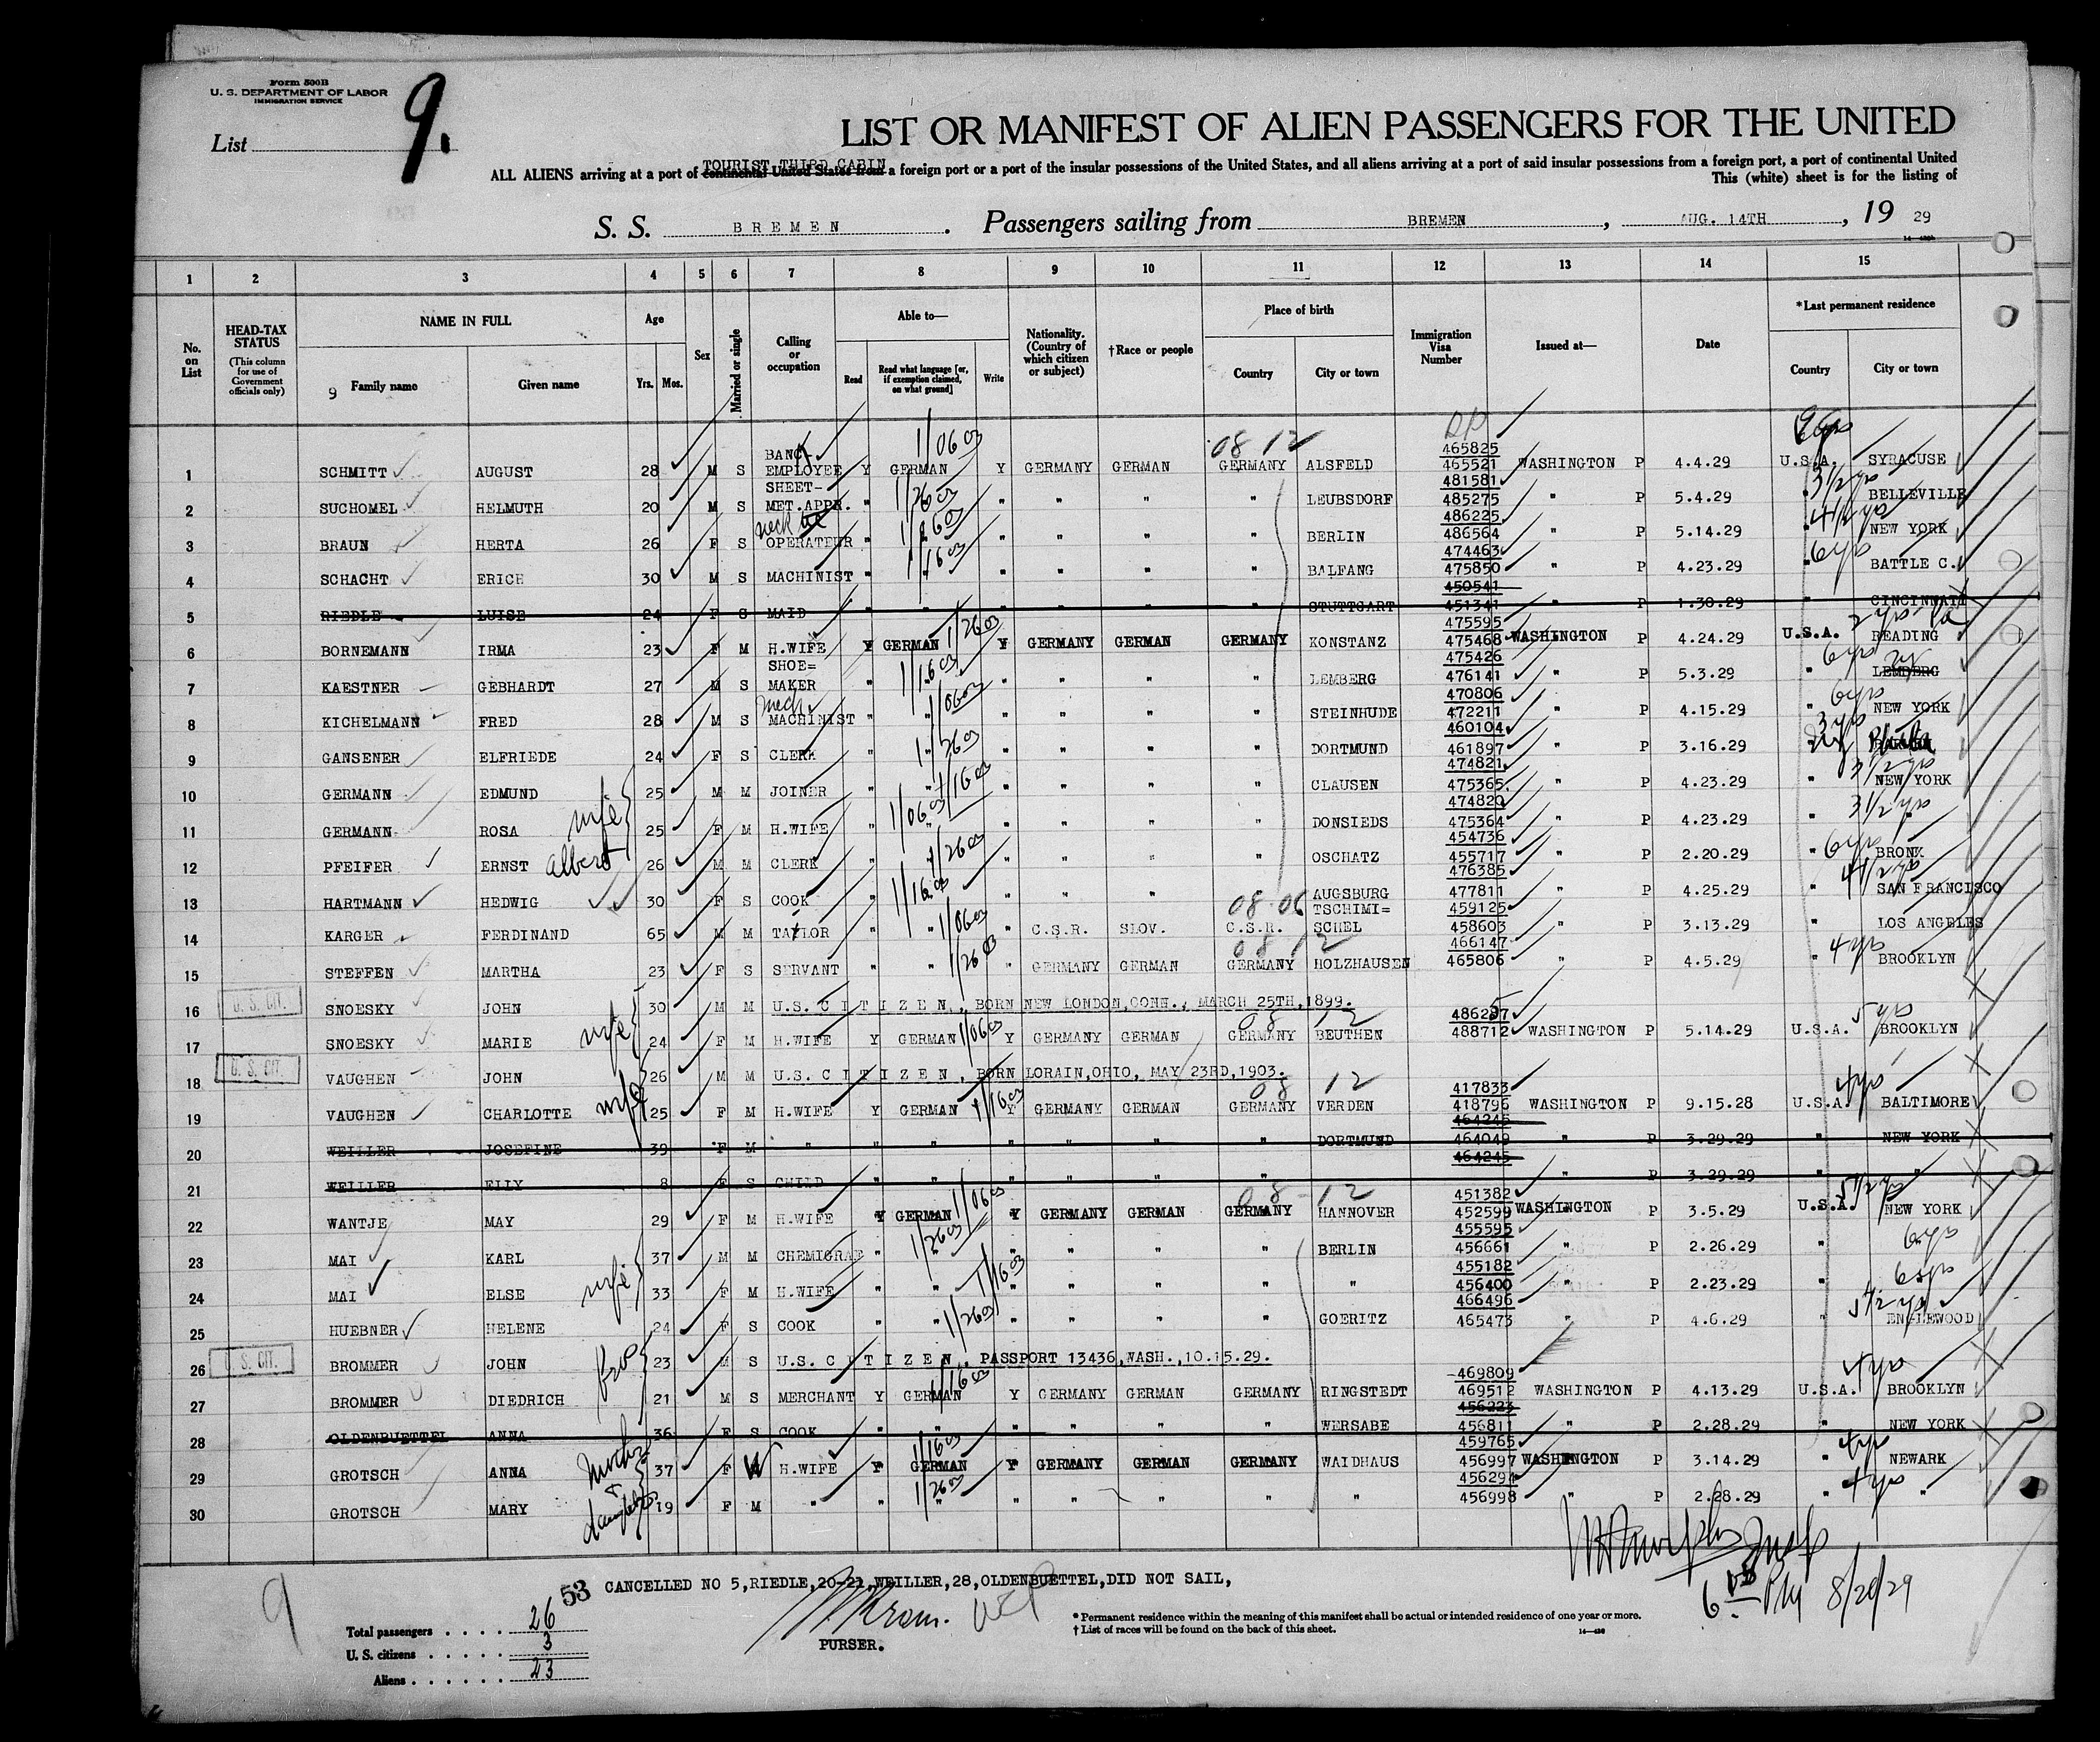 Form 500B
U. S. DEPARTMENT OF LABOR
IMMIGRATION SERVICE
List 9.
LIST OR MANIFEST OF ALIEN PASSENGERS FOR THE UNITED
TOURIST THIRD CABIN
ALL ALIENS arriving at a port of continental United States from a foreign port or a port of the insular possessions of the United States, and all aliens arriving at a port of said insular possessions from a foreign port, a port of continental United
This (white) sheet is for the listing of
S. S. BREMEN. Passengers sailing from BREMEN, AUG. 14TH, 19 29
1 2 3 4 5 6 7 8 9 10 11 12 13 14 15
No. on List
HEAD-TAX STATUS
(This column for use of Government officials only)
NAME IN FULL
9 Family name
Given name
Age
Yrs. Mos.
Sex
Married or single
Calling or occupation
Able to—
Read
Read what language [or, if exemption claimed, on what ground]
Write
Nationality. (Country of which citizen or subject)
†Race or people
Place of birth
Country
City or town
Immigration Visa Number
Issued at—
Date
*Last permanent residence
Country
City or town
1 SCHMITT AUGUST 28 M S BANC-EMPLOYEE Y GERMAN Y GERMANY GERMAN GERMANY ALSFELD 465825 465521 WASHINGTON P 4.4.29 U.S.A. SYRACUSE
2 SUCHOMEL HELMUTH 20 M S SHEET-MET.APPR. " " " " " " LEUBSDORF 481581 485275 " P 5.4.29 " BELLEVILLE
3 BRAUN HERTA 26 F S OPERATEUR " " " " " " BERLIN 486225 486564 " P 5.14.29 " NEW YORK
4 SCHACHT ERICH 30 M S MACHINIST " " " " " " BALFANG 474463 475850 " P 4.23.29 " BATTLE C.
5 RIEDLE LUISE 24 F S MAID " " " " " " STUTTGART 450541 451341 " P 1.30.29 " CINCINNATI
6 BORNEMANN IRMA 23 F M H.WIFE Y GERMAN Y GERMANY GERMAN GERMANY KONSTANZ 475595 475468 WASHINGTON P 4.24.29 U.S.A. READING
7 KAESTNER GEBHARDT 27 M S SHOE=MAKER " " " " " " LEMBERG 475426 476141 " P 5.3.29 " LEMBERG
8 KICHELMANN FRED 28 M S MACHINIST " " " " " " STEINHUDE 470806 472211 " P 4.15.29 " NEW YORK
9 GANSENER ELFRIEDE 24 F S CLERK " " " " " " DORTMUND 460104 461897 " P 3.16.29
10 GERMANN EDMUND 25 M M JOINER " " " " " " CLAUSEN 474821 475365 " P 4.23.29 " NEW YORK
11 GERMANN ROSA wife 25 F M H.WIFE " " " " " " DONSIEDS 474820 475364 " P 4.23.29 " "
12 PFEIFER ERNST Albert 26 M M CLERK " " " " " " OSCHATZ 454736 455717 " P 2.20.29 " BRONX
13 HARTMANN HEDWIG 30 F S COOK " " " " " AUGSBURG 476385 477811 " P 4.25.29 " SAN FRANCISCO
14 KARGER FERDINAND 65 M M TAYLOR " " " C.S.R. SLOV. C.S.R. TSCHIMI=SCHEL 459125 458603 " P 3.13.29 LOS ANGELES
15 STEFFEN MARTHA 23 F S SERVANT " " " GERMANY GERMAN GERMANY HOLZHAUSEN 466147 465806 " P 4.5.29 " BROOKLYN
16 U. S. CIT. SNOESKY JOHN 30 M M U.S. CITIZEN, BORN NEW LONDON,CONN., MARCH 25TH,1899.
17 SNOESKY MARIE wife 24 F M H.WIFE Y GERMAN Y GERMANY GERMAN GERMANY BEUTHEN 488712 WASHINGTON P 5.14.29 U.S.A. BROOKLYN
18 U. S. CIT. VAUGHEN JOHN 26 M M U.S. CITIZEN, BORN LORAIN,OHIO, MAY 23RD,1903.
19 VAUGHEN CHARLOTTE wife 25 F M H.WIFE Y GERMAN Y GERMANY GERMAN GERMANY VERDEN 417833 418796 WASHINGTON P 9.15.28 U.S.A. BALTIMORE
20 WEILLER JOSEFINE 39 F M " " " " " " " DORTMUND 464245 464049 " P 3.29.29 " NEW YORK
21 WEILLER ELLY 8 F S CHILD " " " " " " 464245 " P 3.29.29 " "
22 WANTJE MAY 29 F M H.WIFE Y GERMAN Y GERMANY GERMAN GERMANY HANNOVER 451382 452599 WASHINGTON P 3.5.29 U.S.A. NEW YORK
23 MAI KARL 37 M M CHEMIGRAF " " " " " " BERLIN 455595 456661 " P 2.26.29 "
24 MAI ELSE wife 33 F M H.WIFE " " " " " " " 455182 456400 " P 2.23.29 "
25 HUEBNER HELENE 24 F S COOK " " " " " " GOERITZ 466496 465473 " P 4.6.29 " ENGLEWOOD
26 U. S. CIT. BROMMER JOHN 23 M S U.S. CITIZEN, PASSPORT 13436,WASH.,10.15.29.
27 BROMMER DIEDRICH 21 M S MERCHANT Y GERMAN Y GERMANY GERMAN GERMANY RINGSTEDT 469809 469512 WASHINGTON P 4.13.29 U.S.A. BROOKLYN
28 OLDENBUETTEL ANNA 36 F S COOK " " " " " " WERSABE 456223 456811 " P 2.28.29 " NEW YORK
29 GROTSCH ANNA mother 37 F W H.WIFE Y GERMAN Y GERMANY GERMAN GERMANY WAIDHAUS 459765 456997 WASHINGTON P 3.14.29 " NEWARK
30 GROTSCH MARY daughter 19 F M " " " " " " " " 456294 456998 " P 2.28.29 " "
9 53 CANCELLED NO 5,RIEDLE,20-21,WEILLER,28,OLDENBUETTEL,DID NOT SAIL,
Total passengers 26
U. S. citizens 3
Aliens 23
PURSER.
*Permanent residence within the meaning of this manifest shall be actual or intended residence of one year or more.
†List of races will be found on the back of this sheet.
8/20/29